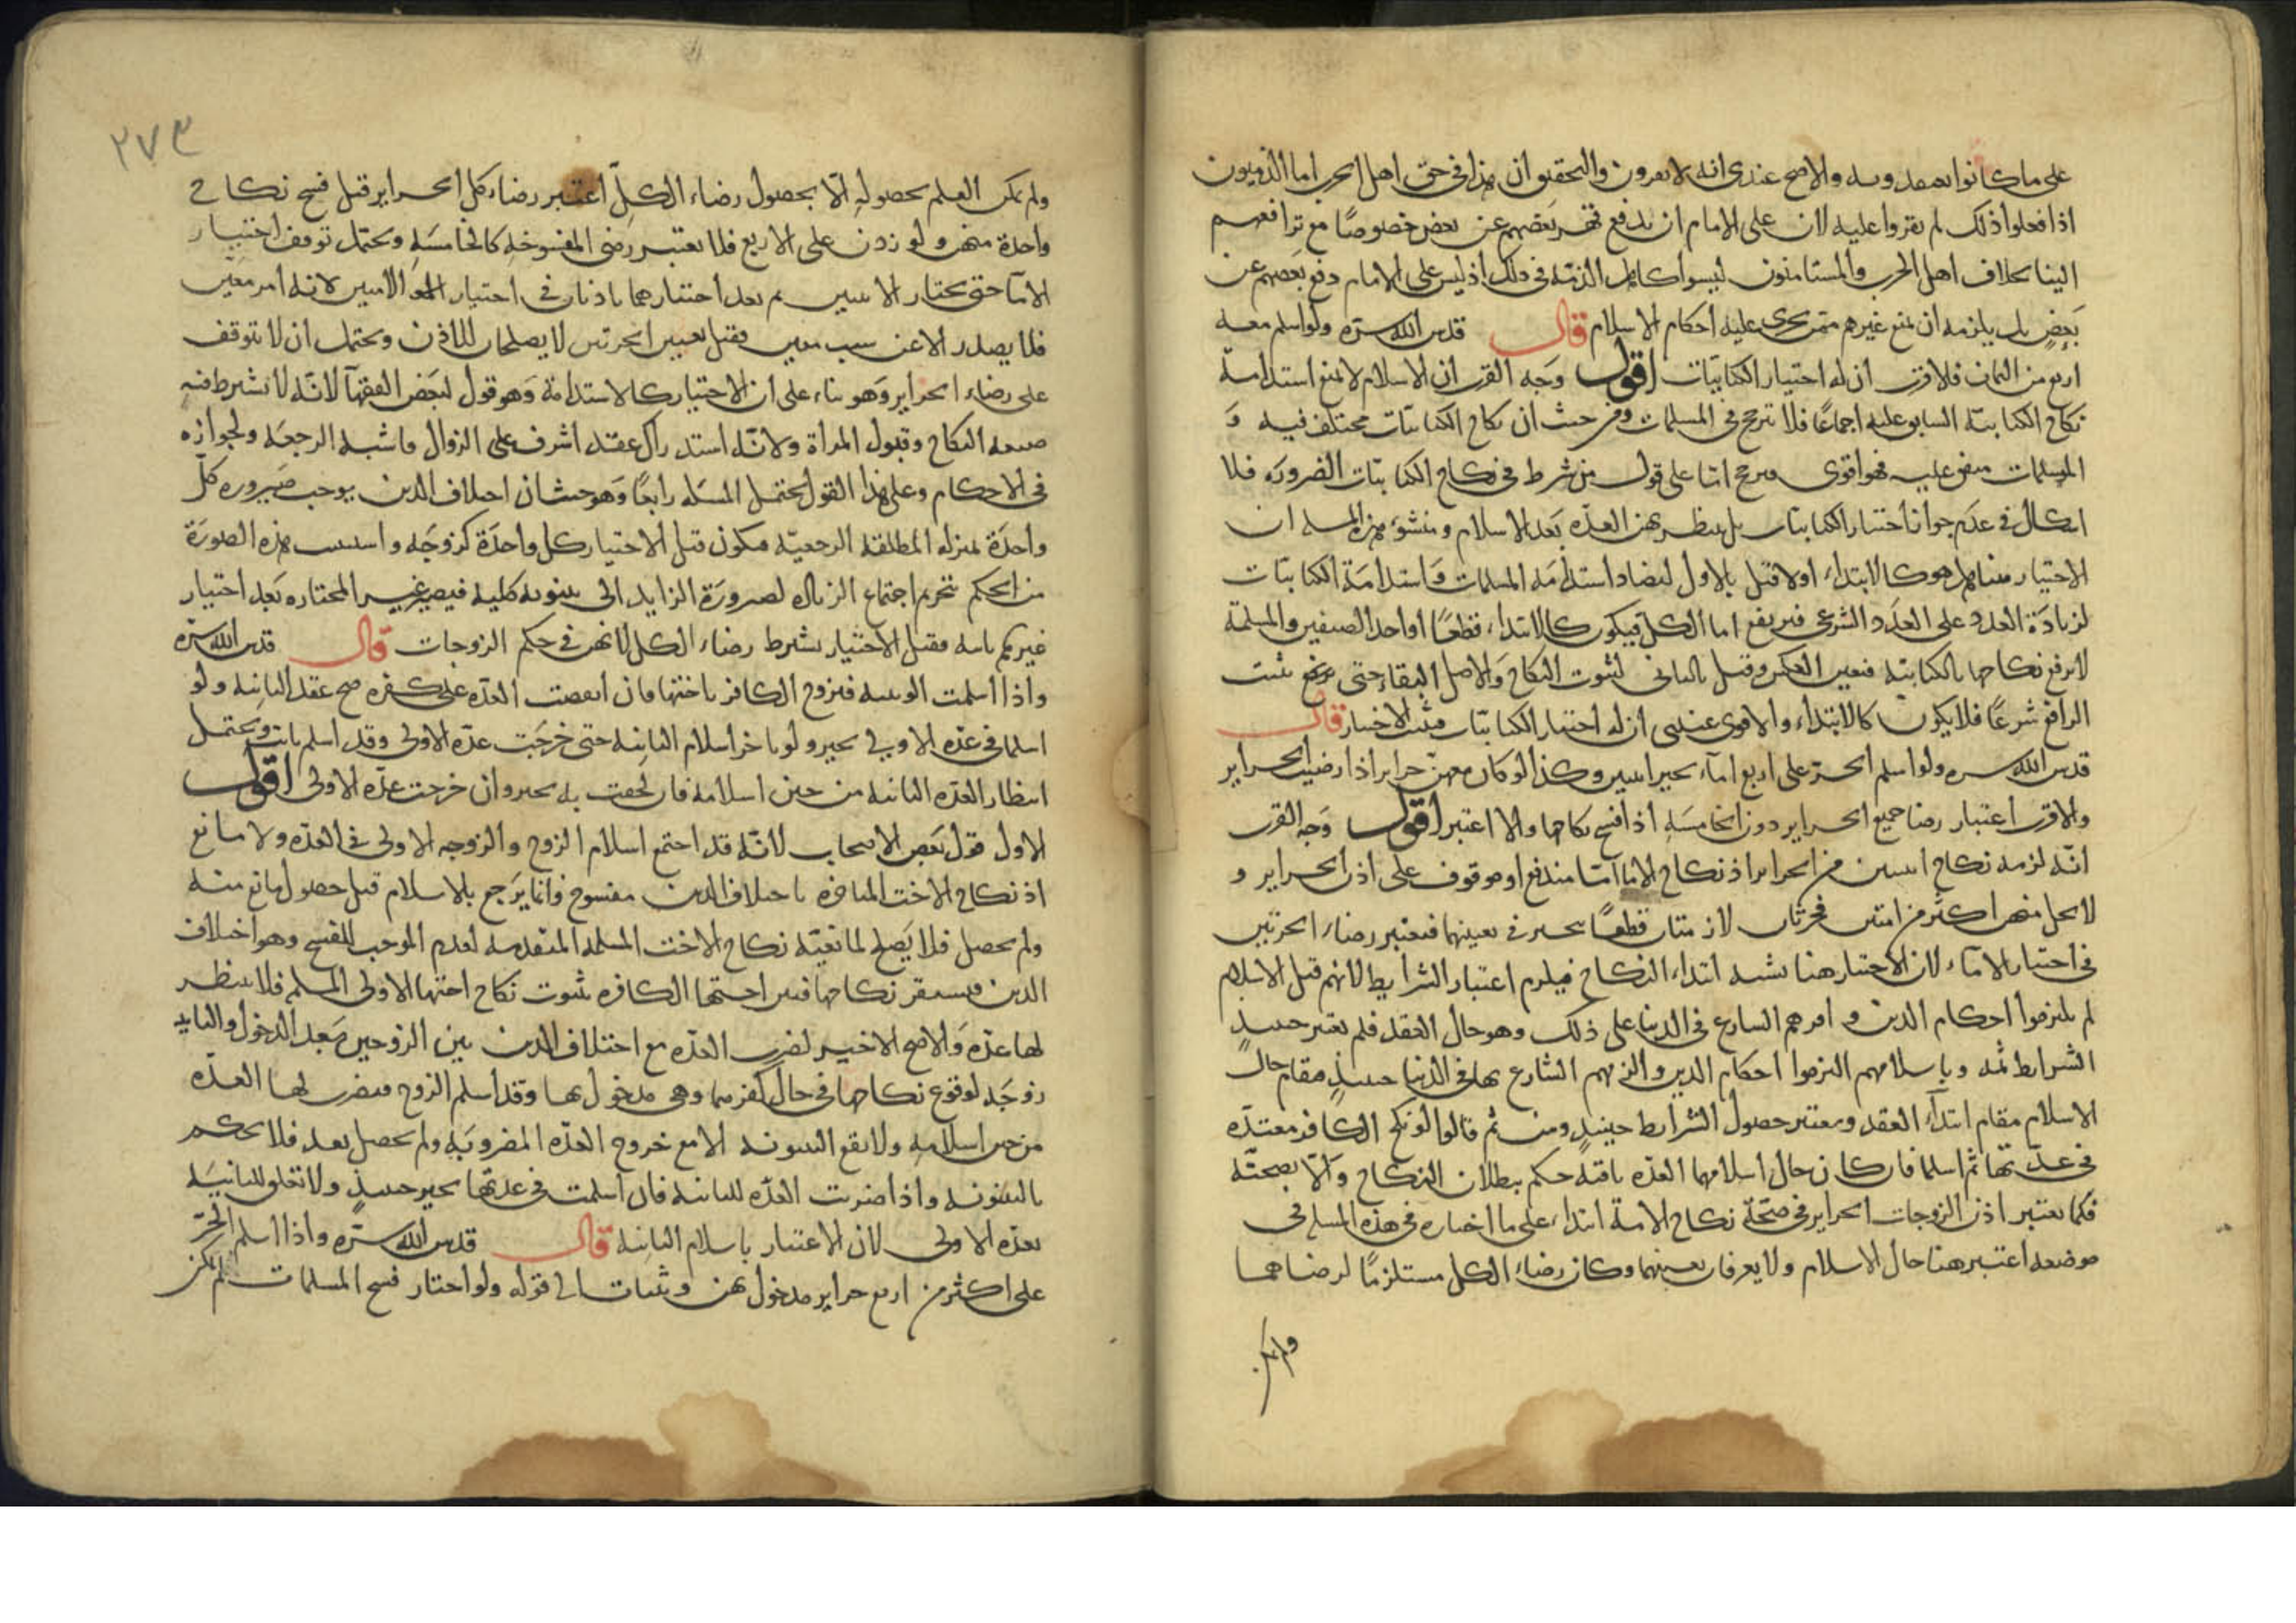 على ما كانوا يعتقدونه والاصح عندى انه لا يقرون والتحقيق ان هذا فى حق اهل الحرب اما الذميون
اذا فعلوا ذلك لم يقروا عليه لان على الامام ان يدفع قهر بعضهم عن بعض خصوصًا مع ترافعهم
الينا بخلاف اهل الحرب والمستامنون ليسوا كاهل الذمة فى ذلك اذ ليس على الامام دفع بعضهم عن
بعض بل يلزمه ان يمنع غيرهم ممن يجرى عليه احكام الاسلام قال قدس الله سره ولو اسلم معه
اربع من الثمان فالاقرب ان له اختيار الكتابيات اقول وجه القرب ان الاسلام لا يمنع استدامة
نكاح الكتابية السابق عليه اجماعًا فلا ترجح فى المسلمات ومن حيث ان نكاح الكتابيات مختلف فيه و
المسلمات متفق عليه فهو اقوى فيرجح اما على قول من شرط فى نكاح الكتابيات الضرورة فلا
اشكال فى عدم جواز اختيار الكتابيات بل ينظر بهن العدة بعد الاسلام ومنشؤ هذه المسلة ان
الاختيار هنا هل هو كالابتداء اولا قيل بالاول لتضاد استدامة المسلمات واستدامة الكتابيات
لزيادة العدد على العدد الشرعى فيرتفع اما الكل فيكون كالابتداء قطعًا او احد الصنفين والمسلمة
لا يرفع نكاحها بالكتابية فتعين العكس وقيل بالثانى لثبوت النكاح والاصل البقاء حتى يثبت
الرافع شرعًا فلا يكون كالابتداء والاقوى عندى ان له اختيار الكتابيات فيثبت الاختيار قال
قدس الله سره ولو اسلم الحر على اربع اماء تخير اثنين وكذا لو كان معهن حراير اذا رضيت الحراير
والاقرب اعتبار رضا جميع الحراير دون الخامسة اذا فسخ نكاحها والا اعتبر اقول وجه القرب
انه لزمه نكاح اثنين من الحراير اذ نكاح الاما اما مندفع او موقوف على اذن الحراير و
لا يحل منهن اكثر من امتين فحرتان لازمتان قطعًا تخير فى تعيينهما فيعتبر رضاء الحرتين
فى اختيار الاماء لان الاختيار هنا يشبه ابتداء النكاح فيلزم اعتبار الشرايط لانهم قبل الاسلام
لم يلتزموا احكام الدين واقرهم الشارع فى الدنيا على ذلك وهو حال العقد فلم يعتبر حينئذ
الشرايط ثمه وباسلامهم التزموا احكام الدين والزمهم الشارع بها فى الدنيا حينئذ فقام حال
الاسلام مقام ابتداء العقد ويعتبر حصول الشرايط حينئذ ومن ثم قالوا لو نكح الكافر معتدة
فى عدتها ثم اسلما فان كان حال اسلامهما العدة باقية حكم ببطلان النكاح والا بصحته
فكما يعتبر اذن الزوجات الحراير فى صحة نكاح الامة ابتداء على ما اختاره فى هذه المسلة فى
موضعه اعتبر هنا حال الاسلام ولا يعرفان بعينهما وكان رضاء الكل مستلزمًا لرضاهما
ولم يكن
٢٧٣
ولم يكن العلم بحصوله الا بحصول رضاء الكل اعتبر رضاء كل الحراير قبل فسخ نكاح
واحدة منهن ولو زدن على الاربع فلا يعتبر رضى المفسوخة كالخامسة ويحتمل توقف اختيار
الاما حتى يختار الاثنين ثم بعد اختيارهما ياذنان فى اختيار الامتين لانه امر معين
فلا يصدر الا عن سبب معين فقبل تعيين الحرتين لا يصلحان للاذن ويحتمل ان لا يتوقف
على رضاء الحراير وهو بناء على ان الاختيار كالاستدامة وهو قول لبعض الفقهآ لانه لا يشترط فيه
صيغة النكاح وقبول المراة ولانه استدراك عقد اشرف على الزوال فاشبه الرجعة ولجوازه
فى الاحكام وعلى هذا القول يحتمل المسلة رابعًا وهو حيث ان اختلاف الدين يوجب صيرورة كل
واحدة بمنزلة المطلقة الرجعية فيكون قبل الاختيار كل واحدة كزوجة واستثنيت هذه الصورة
من الحكم بتحريم اجتماع الزيادة لصرورة الزايد الى بينونة كلية فيصير غير المختارة بعد اختيار
غيرهم باينة فقبل الاختيار يشترط رضاء الكل لانهن فى حكم الزوجات قال قدس الله سره
واذا اسلمت الوثنية فتزوج الكافر باختها فان انقضت العدة على كفره صح عقد الثانية ولو
اسلما فى عدة الاولى تخير ولو تاخر اسلام الثانية حتى خرجت عدة الاولى وقد اسلم بانت ويحتمل
انتظار العدة الثانية من حين اسلامه فان لحقت به تخير وان خرجت عدة الاولى اقول
الاول قول بعض الاصحاب لانه قد اجتمع اسلام الزوج والزوجة الاولى فى العدة ولا مانع
اذ نكاح الاخت المتاخرة باختلاف الدين مفسوخ وانما يرجع بالاسلام قبل حصول مانع منه
ولم يحصل فلا يصلح لمانعية نكاح الاخت المسلمة المتقدمة لعدم الموجب للفسخ وهو اختلاف
الدين فيستقر نكاحها فتبين اختها الكافرة بثبوت نكاح اختها الاولى المسلمة فلا ينتظر
لها عدة والاصح الاخير لضرب العدة مع اختلاف الدين بين الزوجين بعد الدخول والثانية
زوجة لوقوع نكاحها فى حال كفرهما وهى مدخول بها وقد اسلم الزوج فيضرب لها العدة
من حين اسلامه ولا يقع البينونة الا مع خروج العدة المضروبة ولم يحصل بعد فلا يحكم
بالبينونة واذا ضربت العدة للثانية فان اسلمت فى عدتها تخير حينئذ ولا تعلق للثانية
بعدة الاولى لان الاعتبار باسلام الثانية قال قدس الله سره واذا اسلم الحر
على اكثر من اربع حراير مدخول بهن وثنيات الى قوله ولو اختار فسخ المسلمات لم يكن